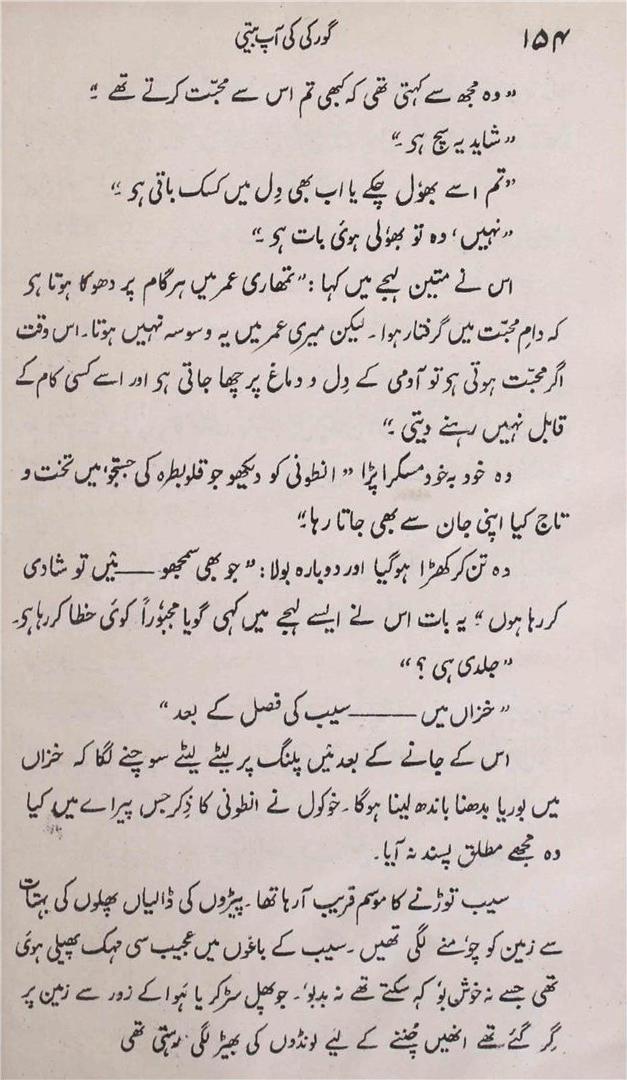 ۱۵۴
گورکی کی آپ بیتی
”وہ مجھ سے کہتی تھی کہ کبھی تم اس سے محبّت کرتے تھے۔“
”شاید یہ سچ ہو۔“
”تم اسے بھوٗل چکے یا اب بھی دِل میں کسک باقی ہو۔“
”نہیں، وہ تو بھوٗلی ہوئ بات ہو۔“
اس نے متین لہجے میں کہا: ”تمھاری عمر میں ہر گام پر دھوکا ہوتا ہو
کہ دامِ محبّت میں گرفتار ہوا۔ لیکن میری عمر میں یہ وسوسہ نہیں ہوتا۔ اس وقت
اگر محبّت ہوتی ہو تو آدمی کے دِل و دماغ پر چھا جاتی ہو اور اسے کسی کام کے
قابل نہیں رہنے دیتی۔“
وہ خود بہ خود مسکرا پڑا ”انطونی کو دیکھو جو قلوبطرہ کی جستجوٗ میں تخت و
تاج کیا اپنی جان سے بھی جاتا رہا۔“
وہ تن کر کھڑا ہو گیا اور دوبارہ بولا: ”جو بھی سمجھو —— مَیں تو شادی
کر رہا ہوں“ یہ بات اس نے ایسے لہجے میں کہی گویا مجبوٗراً کوئ خطا کر رہا ہو۔
”جلدی ہی؟“
”خزاں میں —— سیب کی فصل کے بعد“
اس کے جانے کے بعد مَیں پلنگ پر لیٹے لیٹے سوچنے لگا کہ خزاں
میں بوریا بدھنا باندھ لینا ہوگا۔ خوکول نے انطونی کا ذِکر جس پیراے میں کیا
وہ مجھے مطلق پسند نہ آیا۔
سیب توڑنے کا موسم قریب آرہا تھا۔ پیڑوں کی ڈالیاں پھلوں کی بہتات
سے زمین کو چوٗمنے لگی تھیں۔ سیب کے باغوں میں عجیب سی مہک پھیلی ہوئ
تھی جسے نہ خوش بوٗ کہہ سکتے تھے نہ بدبوٗ۔ جو پھل سڑ کر یا ہَوا کے زور سے زمین پر
گِر گئے تھے انھیں چُننے کے لیے لونڈوں کی بھیڑ لگی رہتی تھی